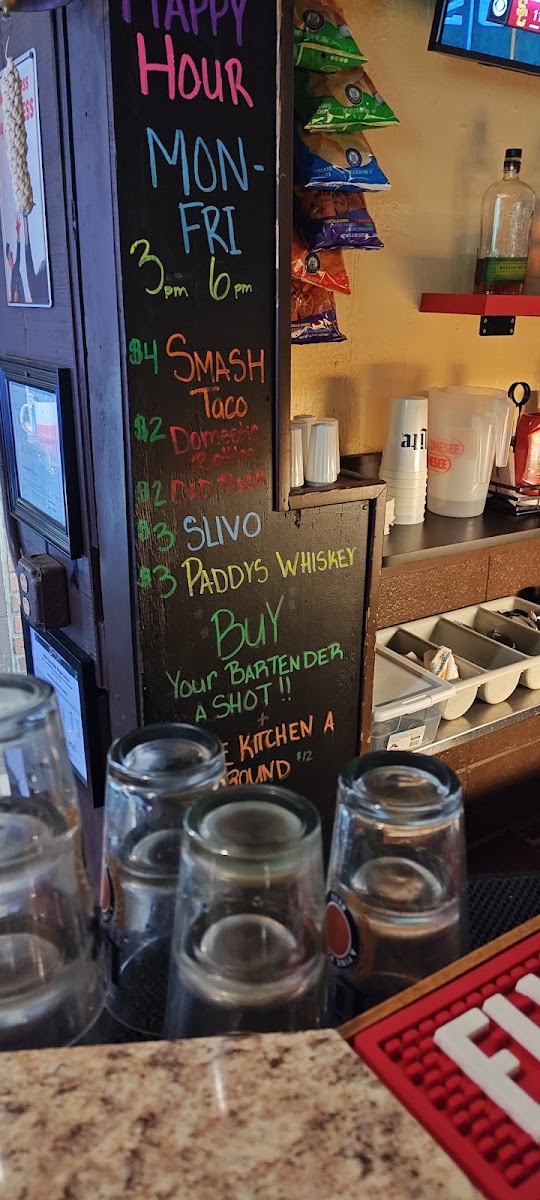 HAPPY
HOUR
MON-
FRI
3pm 6pm
$4 SMASH
Taco
$2 Domestic
Bottles
$2 Beer
$3 SLIVO
$3 PADDYS WHISKEY
BUY
Your BARTENDER
A SHOT!!
+
KITCHEN A
ROUND $12
Lite
GENESEE